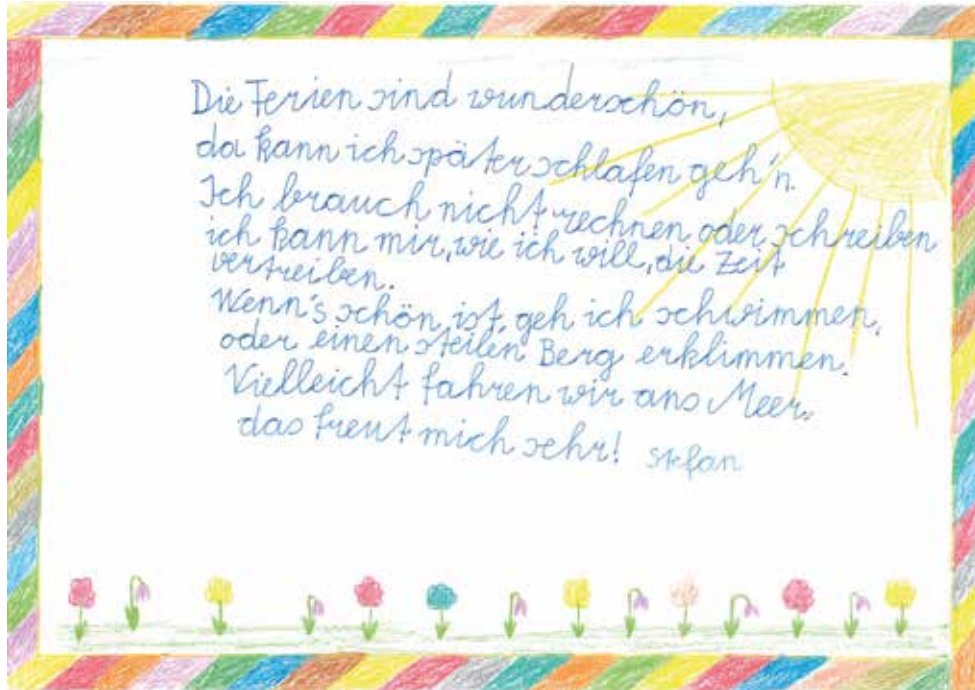 Die Ferien sind wunderschön,
da kann ich später schlafen geh'n.
Ich brauch nicht rechnen oder schreiben
ich kann mir, wie ich will, die Zeit
vertreiben.
Wenn's schön ist, geh ich schwimmen,
oder einen steilen Berg erklimmen.
Vielleicht fahren wir ans Meer,
das freut mich sehr! Stefan